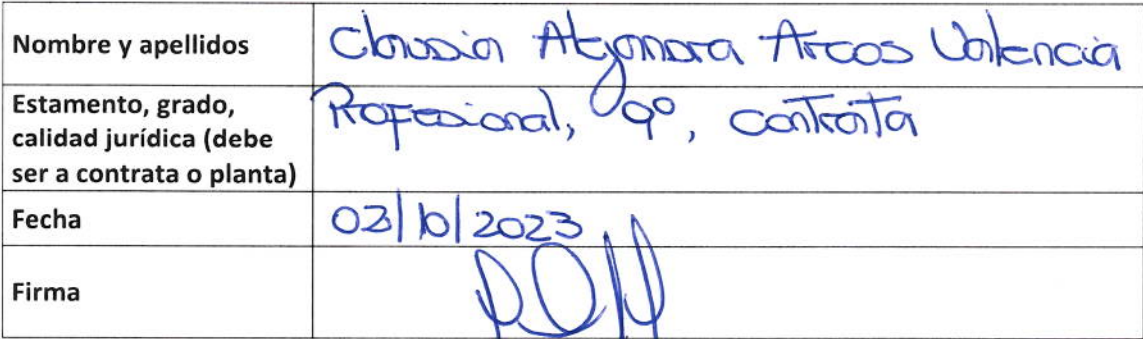 Nombre y apellidos
Claudia Alejandra Arcos Valencia
Estamento, grado,
calidad jurídica (debe
ser a contrata o planta)
Profesional, 9º, contrata
Fecha
03/10/2023
Firma